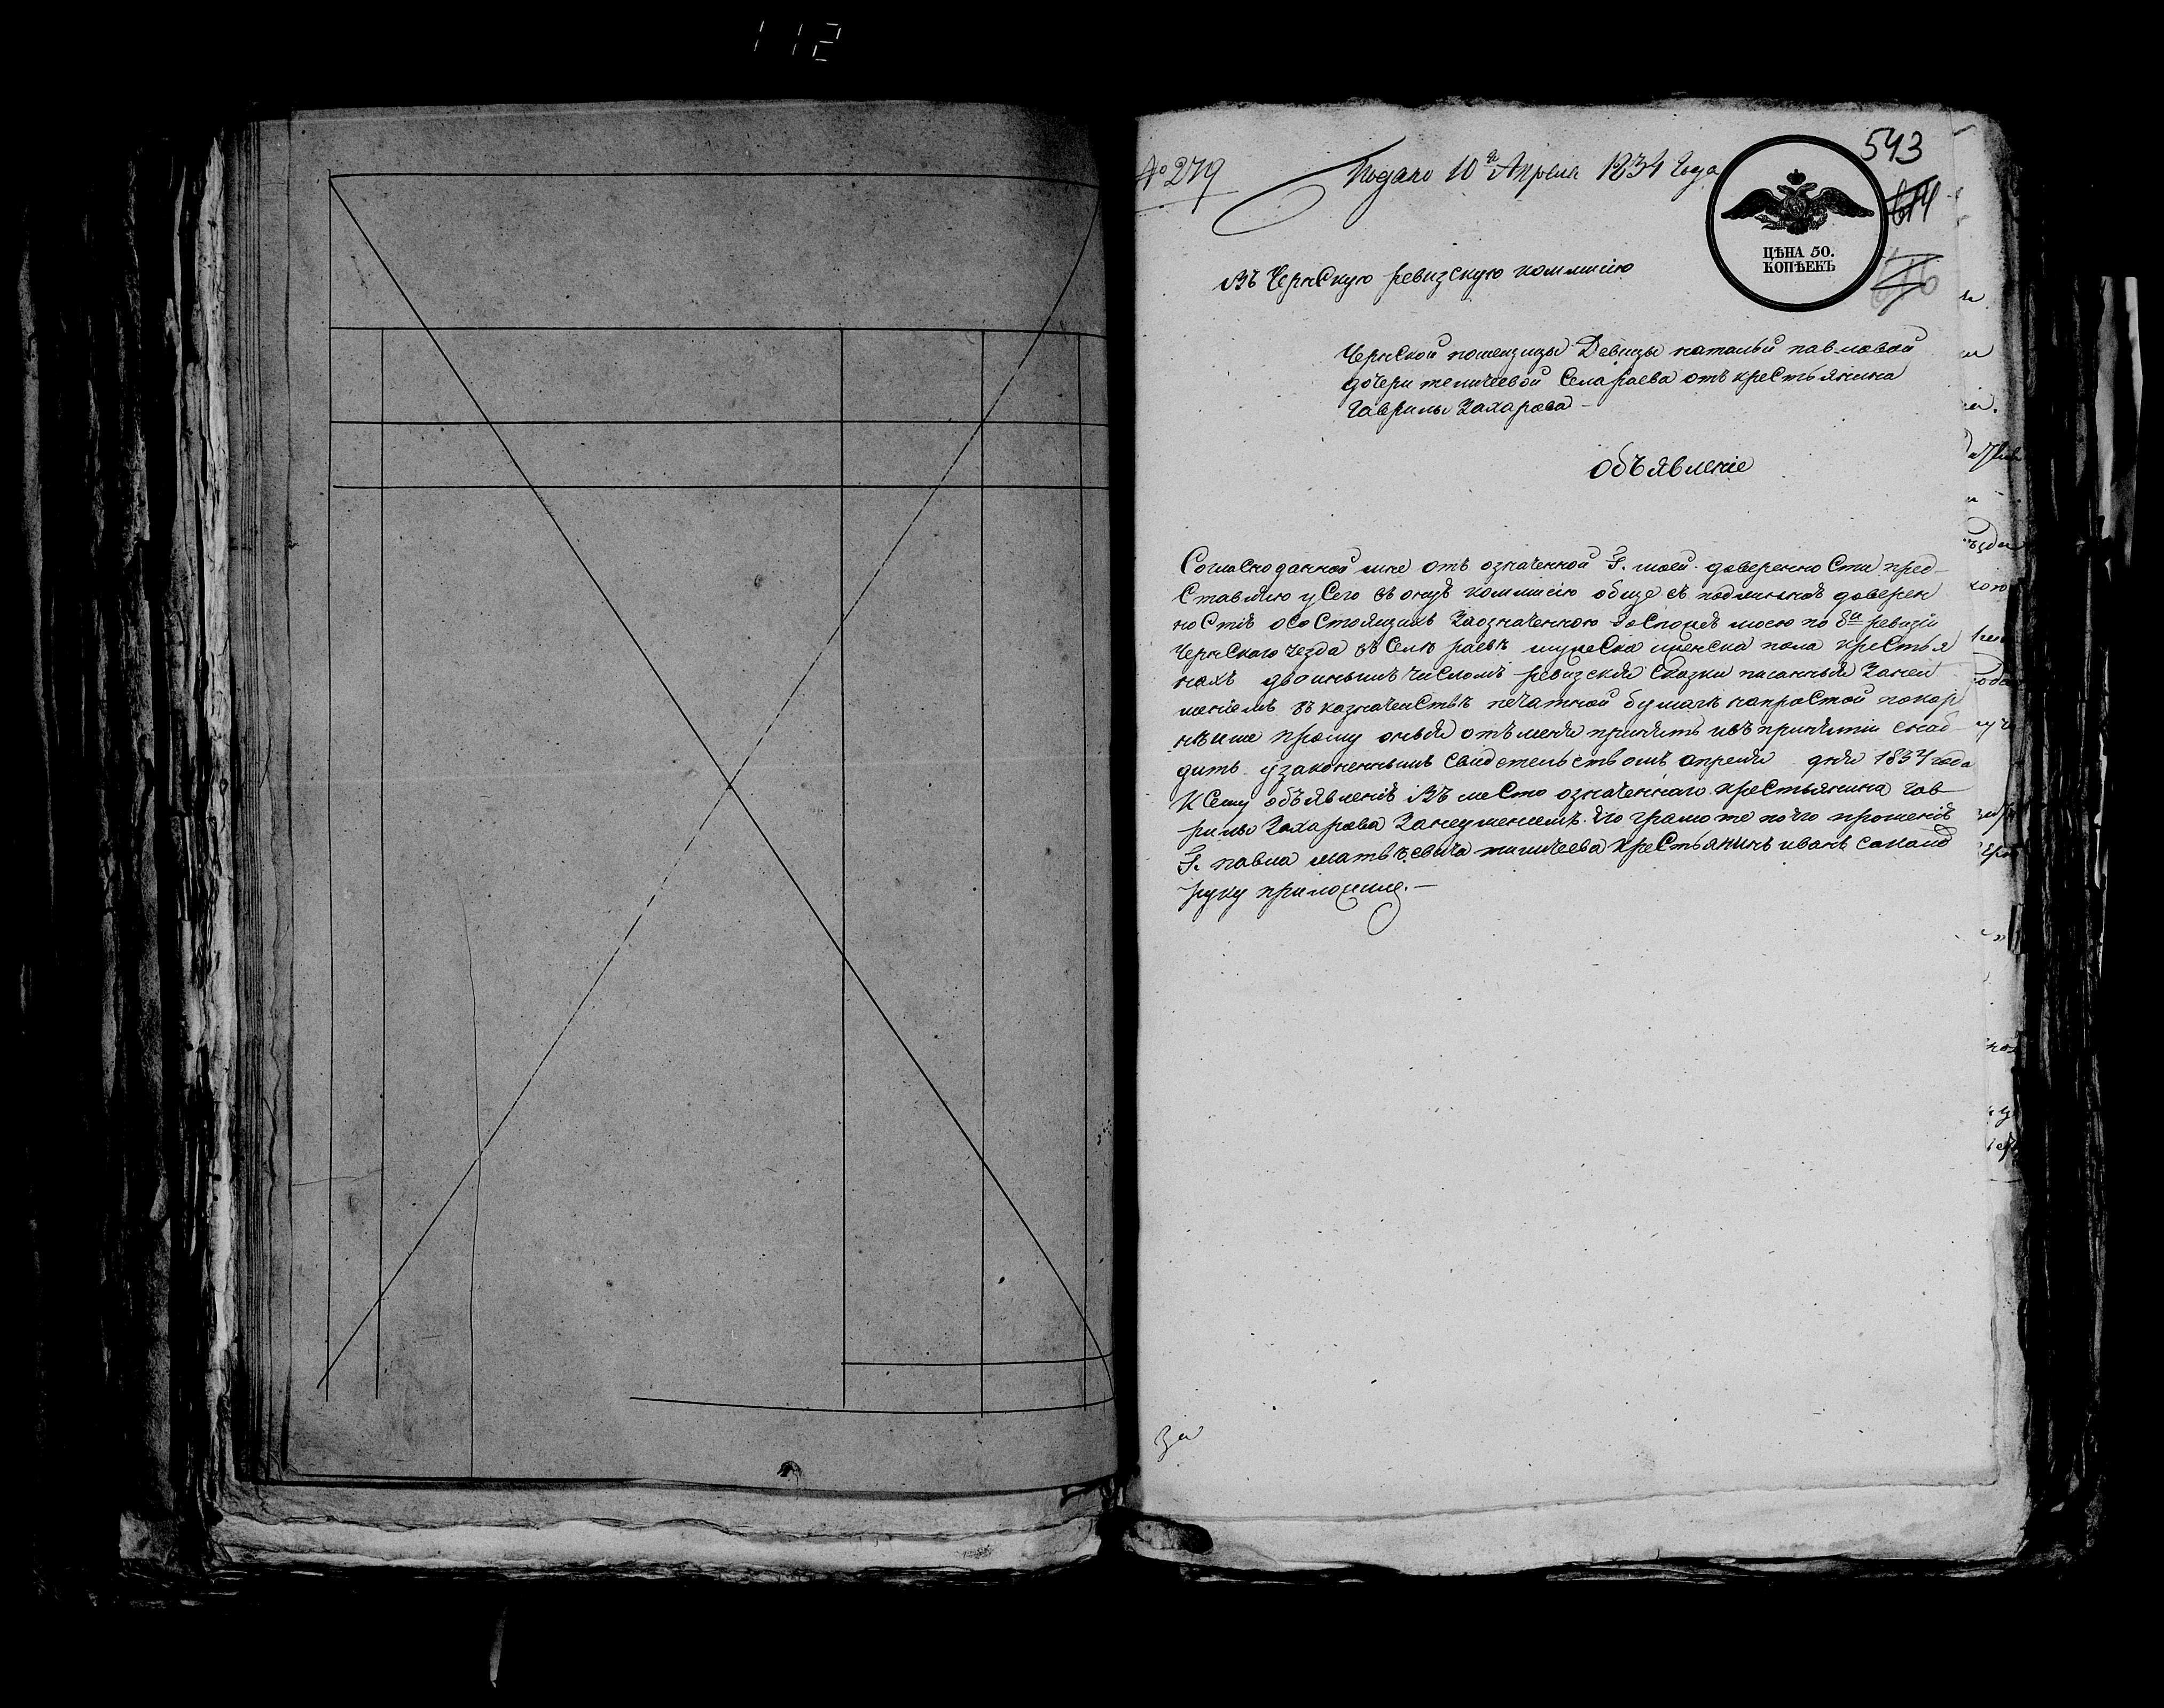 112
№ 279
Подано 10го Апреля 1834 года
543
ЦѢНА 50.
КОПѢЕКЪ
Въ Чернскую ревизскую коммисию
Чернской помещицы Девицы натальи павловой
дочери теличеевой Села раева отъ крестьянина
Гаврилы Захарова
объявление
Согласно данной мне отъ означенной Г. моей доверенности пред
ставляю у сего въ оную коммисию обще съ подлинною доверен
ностию о состоящихъ За означенною Госпожею моею по 8й ревизии
Чернскаго уезда въ Селе раеве мужеска и женска пола крестья
нахъ двойнымъ числомъ ревизския Сказки писанныя За неи
мениемъ въ казначействе печатной бумаги на простой покор
нейше прошу оныя отъ меня принять и въ принятии снаб
дить узаконеннымъ свидетельствомъ апреля дня 1834 года
К Сему объявлению Въ место означеннаго крестьянина Гав
рилы Захарова За неумениемъ его грамоте по его прошению
Г. павла матвеевича теличеева крестьянинъ иванъ
руку приложилъ.
За